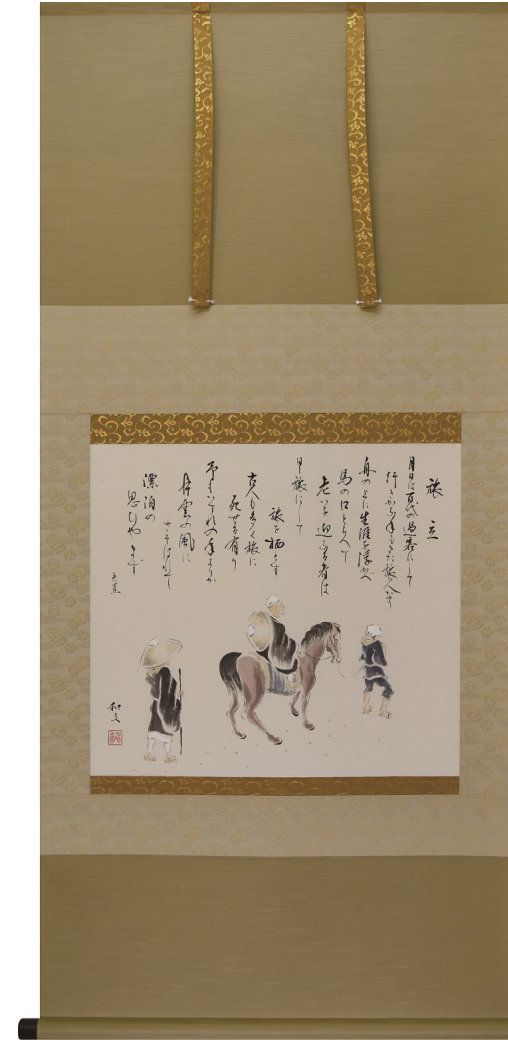 旅立
月日は百代の過客にして
行きかふ年もまた旅人なり
舟の上に生涯を浮かへ
馬の口とらへて
老いを迎ふる者は
日々旅にして
旅を栖とす
古人も多く旅に
死せる有り
予もいづれの年よりか
片雲の風に
さそはれて
漂泊の
思ひやまず
芭蕉